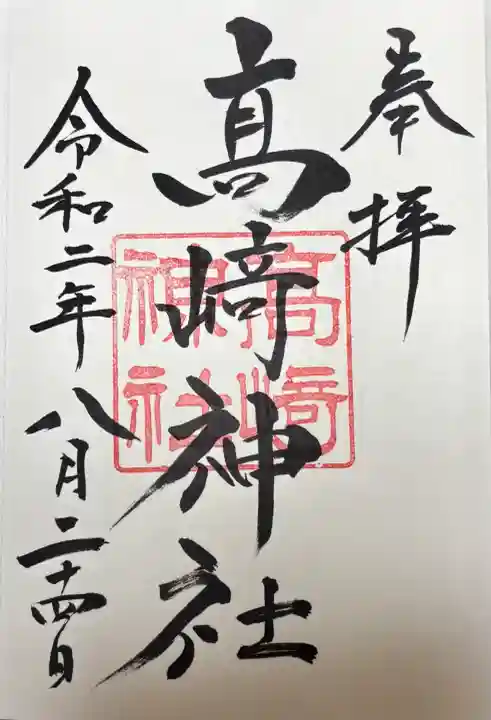 奉拝
髙﨑神社
髙﨑
神社
令和二年八月二十四日